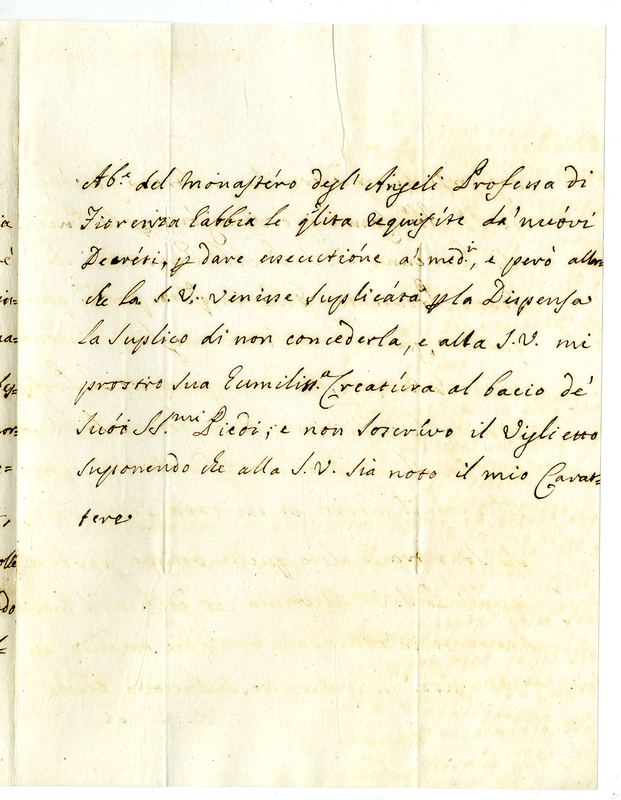 Ab.e del Monastéro degl' Angeli Professa di
Fiorenza l'abbia le q'lità requisite da' nuóvi
Decréti, p dare essecutióne a' med.i, e però allor=
che la S. V. venisse suplicáta p la Dispensa
la suplico di non concederla, e alla S. V. mi
prostro sua humiliss.a Creatúra al bacio dé
suói SS.mi Piedi; e non soscrivo il Viglietto
suponendo che alla S. V. sia noto il mio Carat=
tere